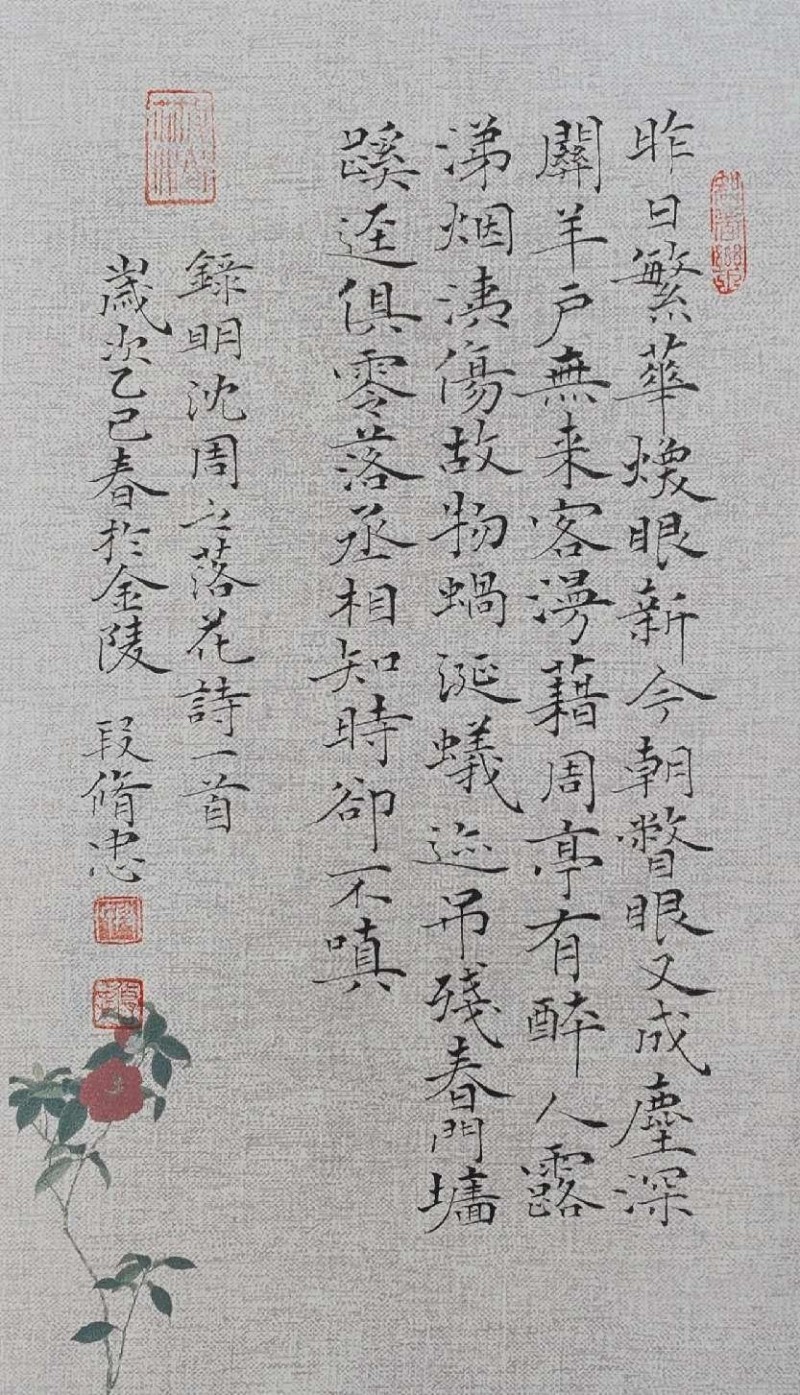 昨日繁華煥眼新今朝瞥眼又成塵深
關羊戶無来客漫藉周亭有醉人露
涕烟洟傷故物蝸涎蟻迹吊殘春門墻
蹊逕俱零落丞相知時卻不嗔
錄明沈周之落花詩一首
歲次乙巳春於金陵 段脩忠